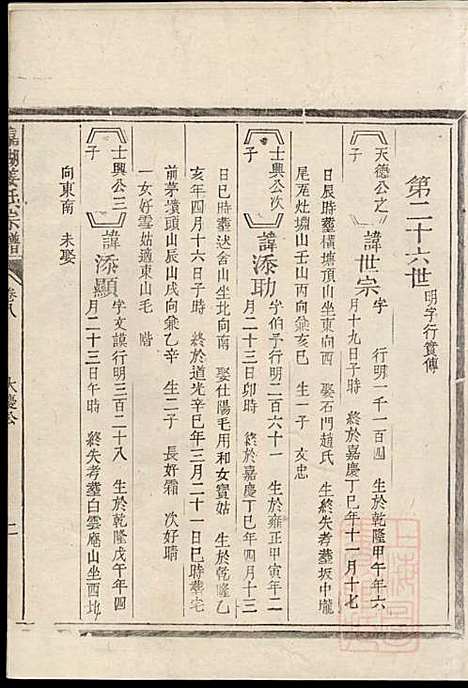 第二十六世
明字行實傳
天德公之子
諱世宗
字 行明一千一百四 生於乾隆甲午年六
月十九日子時 終於嘉慶丁巳年十一月十七
日辰時葬橫塘頂山坐東向西 娶石門趙氏 生終失考葬坂中壠
尾窰灶塢山壬山丙向兼亥巳 生一子 文忠
士興公次子
諱添助
字伯予行明二百六十一 生於雍正甲寅年二
月二十三日卯時 終於嘉慶丁巳年四月十三
日巳時葬述舍山坐北向南 娶仕陽毛用和女寳姑 生於乾隆乙
亥年四月十六日子時 終於道光辛巳年三月二十一日巳時葬宅
前茅墳頭山辰山戌向兼乙辛 生二子 長好霜 次好晴
一女好雪姑適東山毛 階
士興公三子
諱添顯
字文謨行明三百二十八 生於乾隆戊午年四
月二十三日午時 終失考葬白雲庵山坐西北
向東南 未娶
姜氏宗譜
卷八
大慶公
二